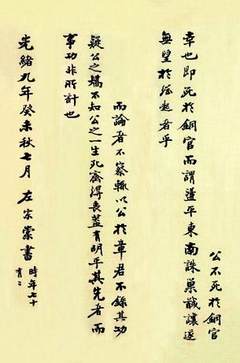 公不死於銅官
幸也即死於銅官而謂盪平東南誅巢馘讓遂
無望於繼起者乎
而論者不察輒以公於章君不錄其功
疑公之矯不知公之一生死齊得喪蓋有明乎其先者而
事功非所計也
光緒九年癸未秋七月 左宗棠書 時年七十
有二